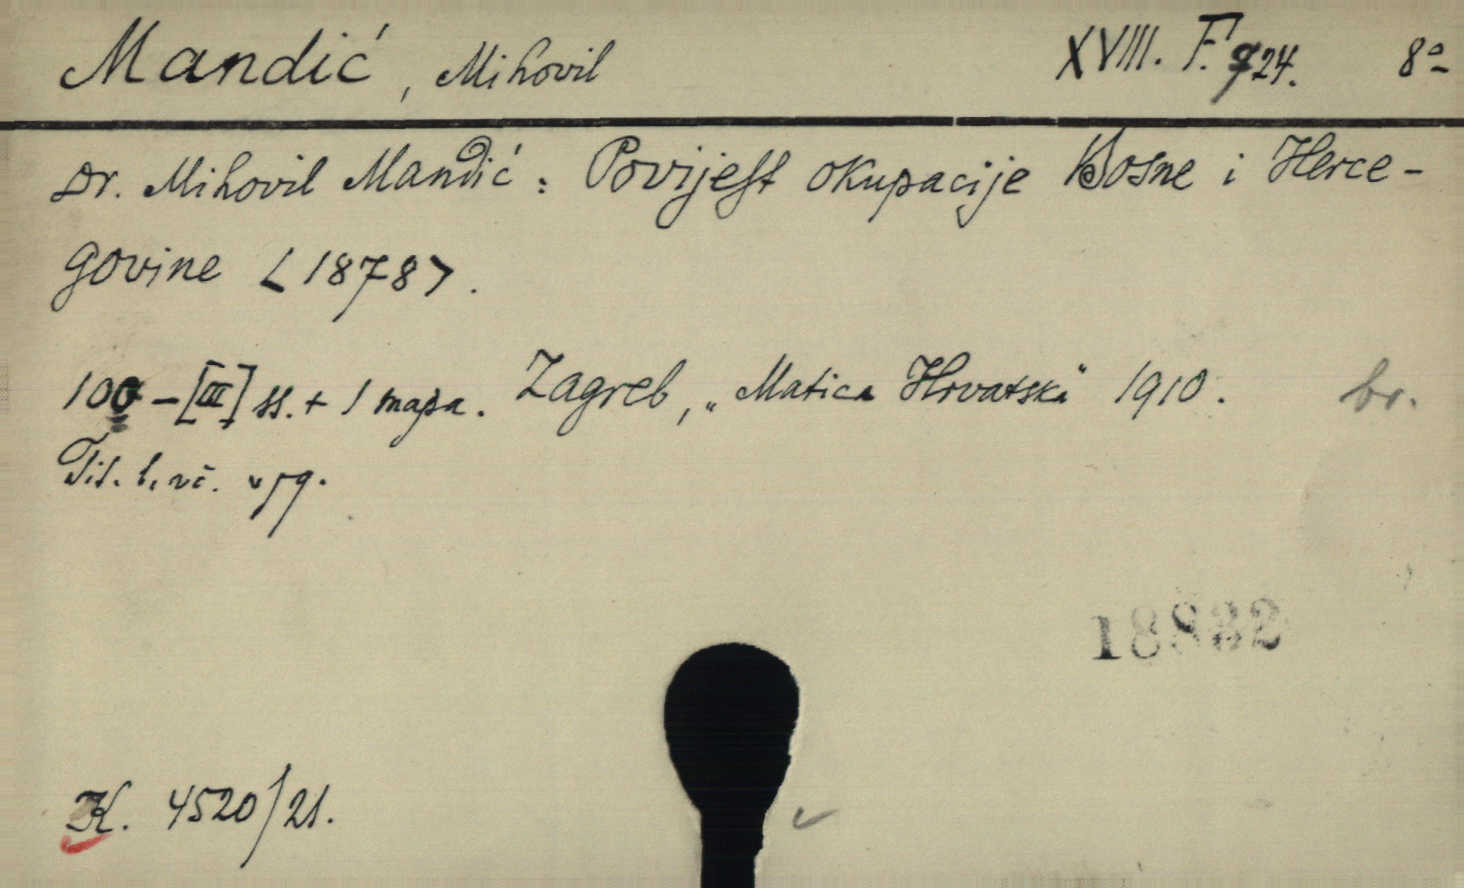 Mandić, Mihovil XVIII. F. 724. 8°
Dr. Mihovil Mandić: Povijest okupacije Bosne i Herce-
govine <1878>.
100 - [III] ss. + 1 mapa. Zagreb, „Matica Hrvatska" 1910. br.
Tit. l. vč.
18832
K. 4520/21.